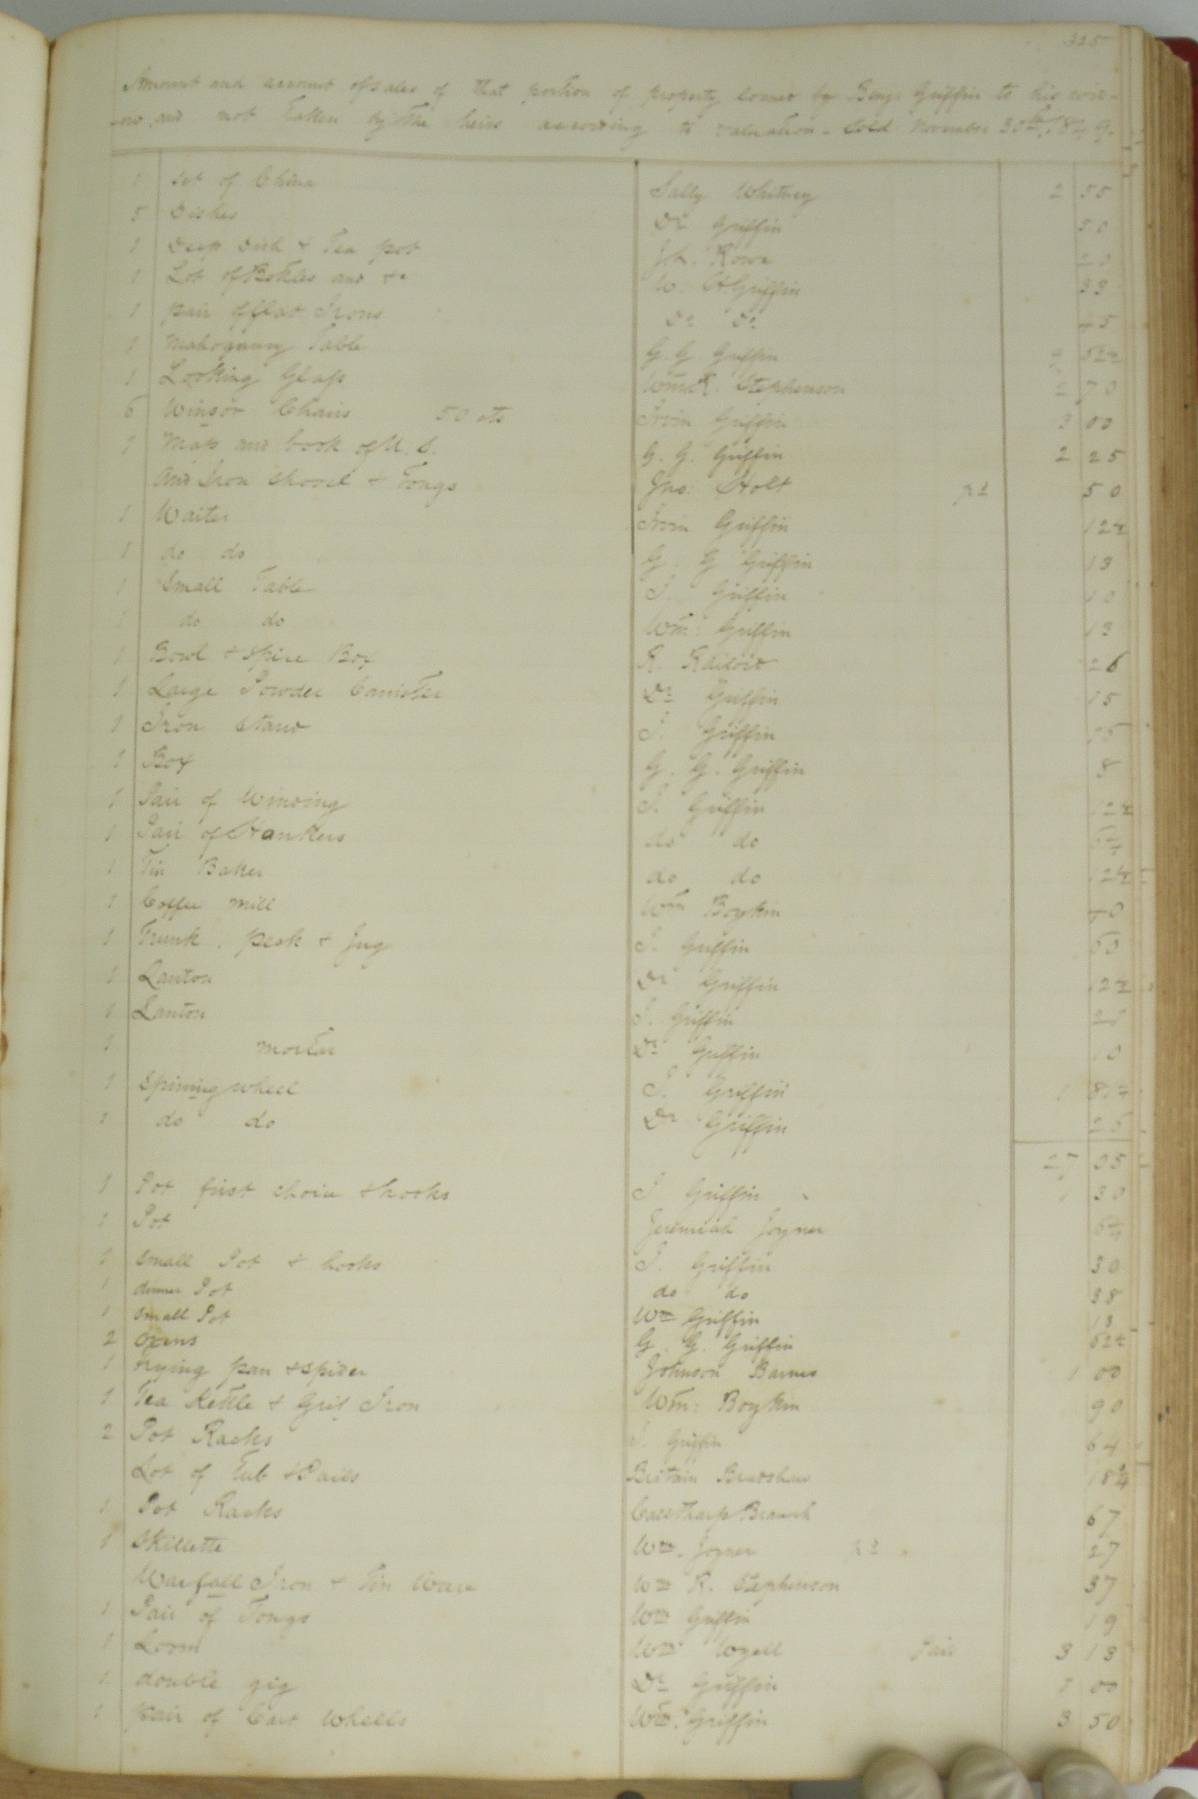 325
Amount and account of sales of that portion of property loaned by Benj. Griffin to his wid-
-ow and not Taken by the heirs according to valuation - sold November 30th, 1849.
1 set of China Sally Whitney 2 55
5 Dishes Dr Griffin 50
1 Deep Dish & Tea pot Jn. Rowe
1 Lot of Bottles and &c W. H Griffin 33
1 pair of flat Irons Do Do 45
1 Mahogany Table G. G Griffin
1 Looking Glass Wm R. Stephenson 2 70
6 Winsor Chairs 50 cts Irvin Griffin 3 00
1 Map and book of U. S. G. G. Griffin 2 25
And Iron shovel & Tongs Jno: Holt pd 50
1 Waiter Irvin Griffin 12½
1 do do G. G Griffin 13
1 Small Table I. Griffin 10
1 do do Wm: Griffin 13
1 Bowl & spice Box R. 26
1 Large Powder Canister Dr Griffin 15
1 Iron Stand I. Griffin 15
1 Box G. G. Griffin 8
1 Pair of Winding I. Griffin 12½
1 Pair of do do
1 Tin Baker do do 12½
1 Coffee mill Wm Boykin
1 Trunk, peck & Jug I. Griffin
1 Lanton Dr Griffin 12½
1 Lanton I. Griffin
1 mortar Dr Griffin 10
1 Spinning wheel I. Griffin
1 do do Dr Griffin 25
27 05
1 Pot first choice & hooks I Griffin 1 30
1 Pot Jeremiah Joyner
1 small Pot & hooks I. Griffin 30
1 dinner Pot do do 38
1 small Pot Wm Griffin 13
2 Ovens G. G. Griffin 62½
1 frying pan & spider Johnson Barnes 1 00
1 Tea Kettle & Grid Iron Wm: Boykin 90
2 Pot Racks I. Griffin 64
Lot of Tub & Pails Britain Bradshaw 18¾
1 Pot Racks Branch 67
1 Skillette Wm. Joyner pd 27
Iron & Tin Ware Wm R. Stephenson 37
1 Pair of Tongs Wm Griffin 19
1 Loom Wm Paid 3 13
1 double gig Dr Griffin 1 00
1 pair of Cart Wheels Wm. Griffin 3 50